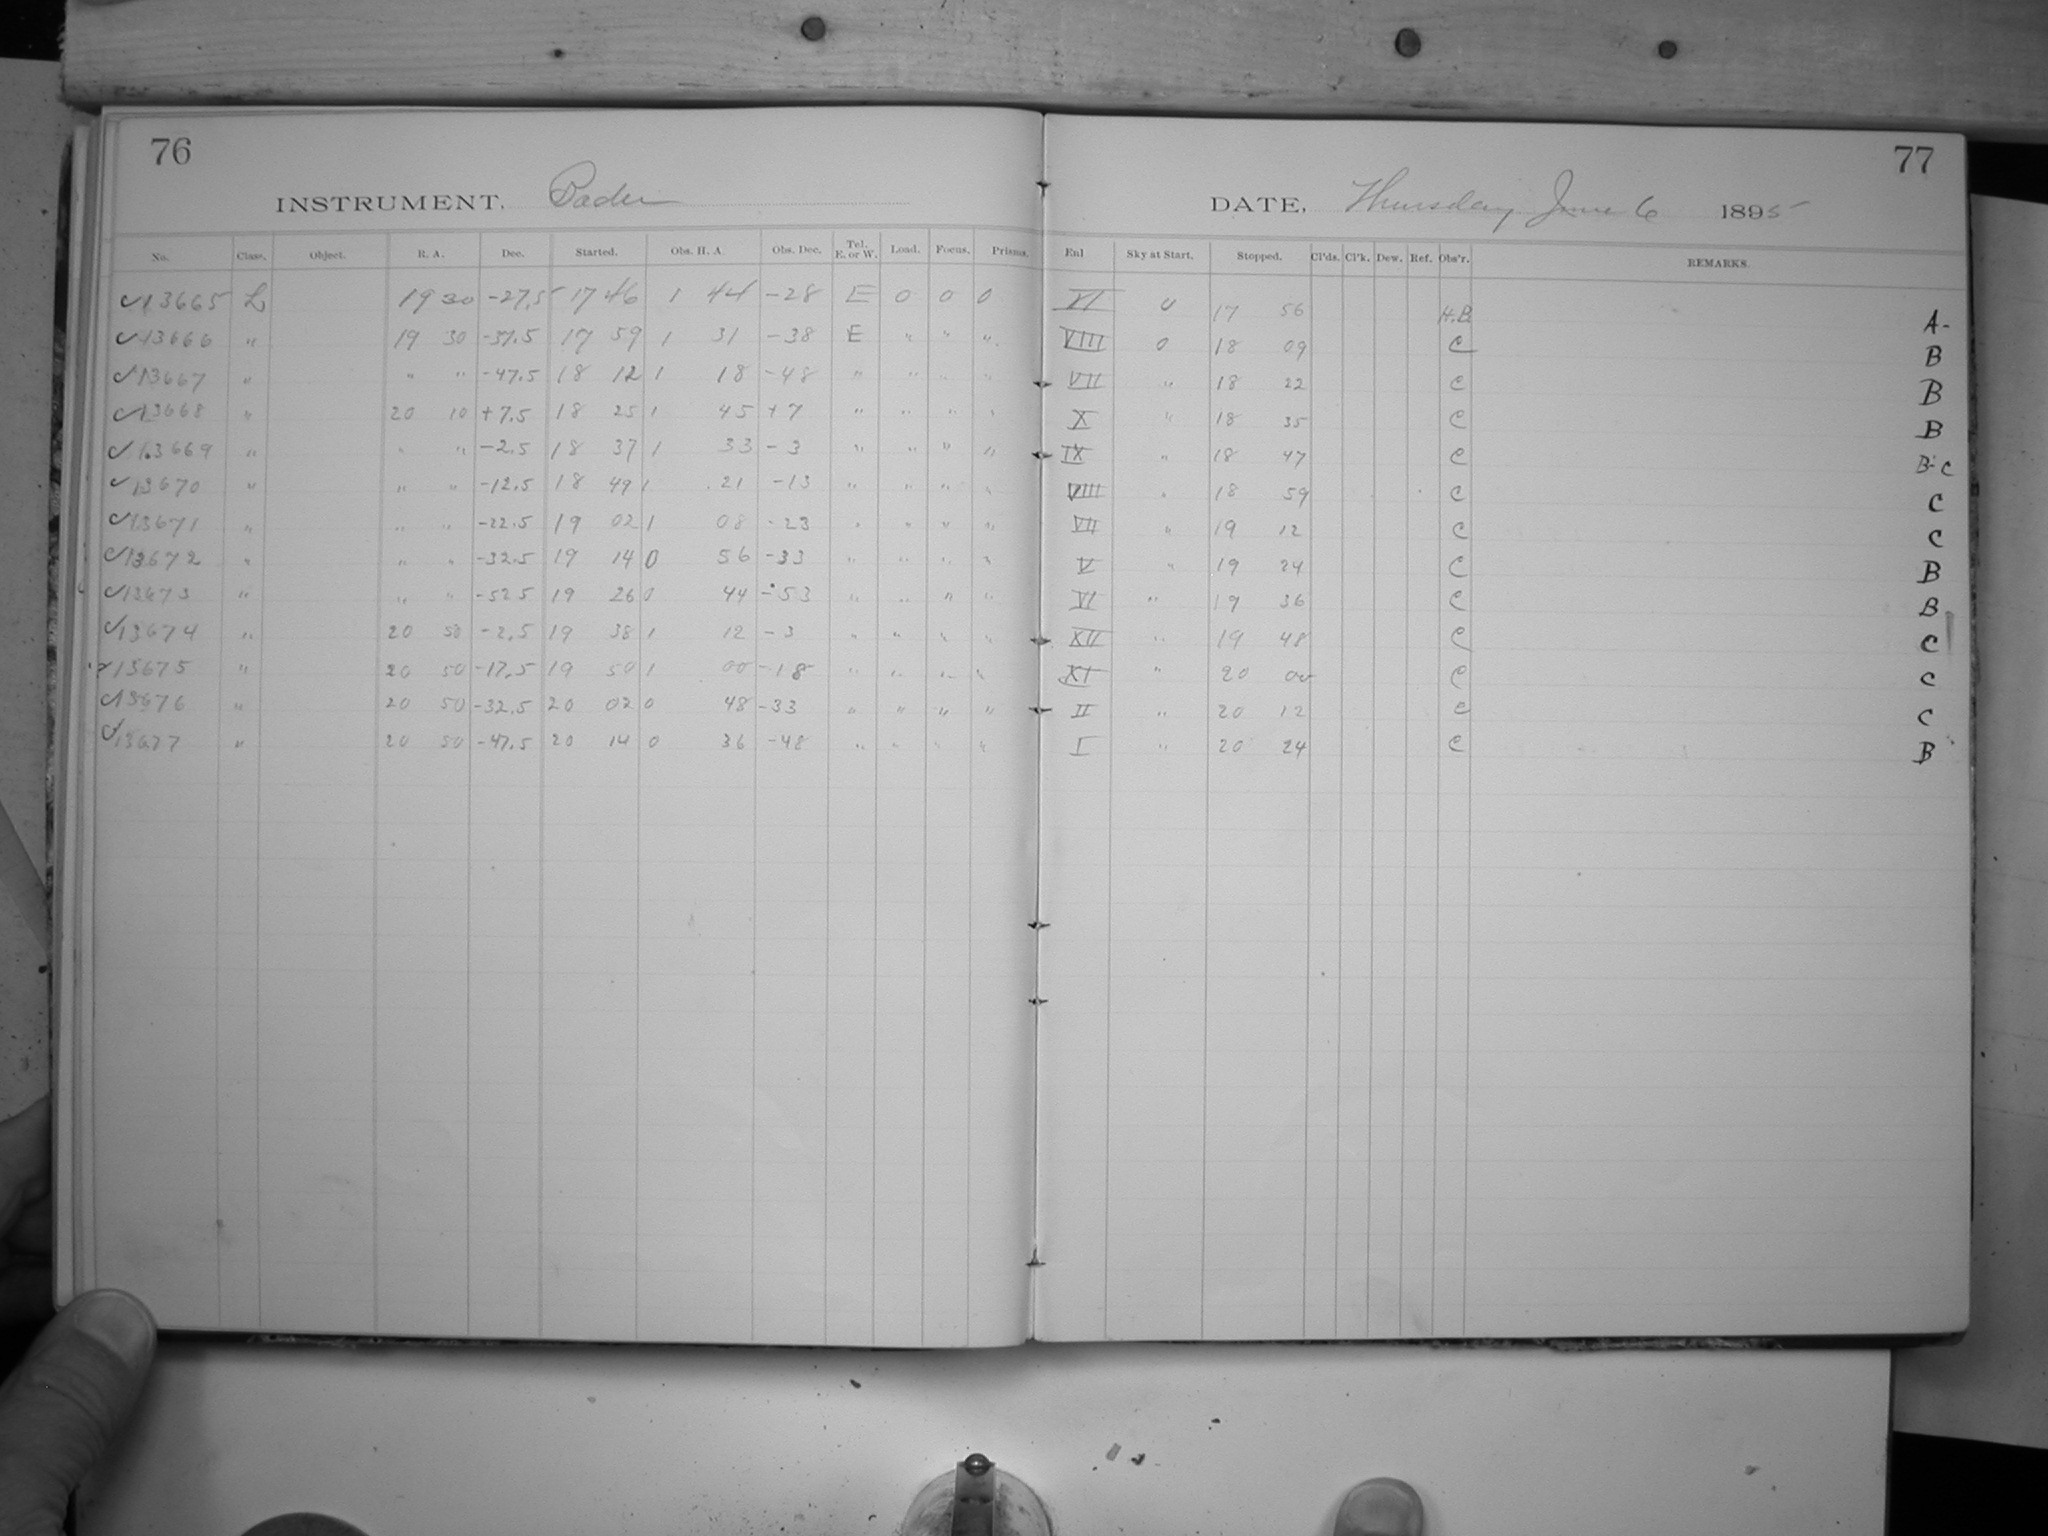 76
77
INSTRUMENT. Bache
DATE, Thursday June 6 1895
No. Class. Object. R. A. Dec. Started. Obs. H. A. Obs. Dec. Tel. E. or W. Load. Focus. Prisms. Enl Sky at Start. Stopped. Cl'ds. Cl'k. Dew. Ref. Obs'r. REMARKS.
✓13665 L 19 30 -27.5 17 46 1 44 -28 E 0 0 0 XI 0 17 56 H.B. A-
✓13666 " 19 30 -37.5 17 59 1 31 -38 E " " " VIII 0 18 09 C B
✓13667 " " " -47.5 18 12 1 18 -48 " " " " VII " 18 22 C B
✓13668 " 20 10 +7.5 18 25 1 45 +7 " " " " X " 18 35 C B
✓13669 " " " -2.5 18 37 1 33 -3 " " " " IX " 18 47 C B-C
✓13670 " " " -12.5 18 49 1 21 -13 " " " " VIII " 18 59 C C
✓13671 " " " -22.5 19 02 1 08 -23 " " " " VII " 19 12 C C
✓13672 " " " -32.5 19 14 0 56 -33 " " " " V " 19 24 C B
✓13673 " " " -52.5 19 26 0 44 -53 " " " " VI " 19 36 C B
✓13674 " 20 50 -2.5 19 38 1 12 -3 " " " " XII " 19 48 C C
✓13675 " 20 50 -17.5 19 50 1 00 -18 " " " " XI " 20 00 C C
✓13676 " 20 50 -32.5 20 02 0 48 -33 " " " " II " 20 12 C C
✓13677 " 20 50 -47.5 20 14 0 36 -48 " " " " I " 20 24 C B